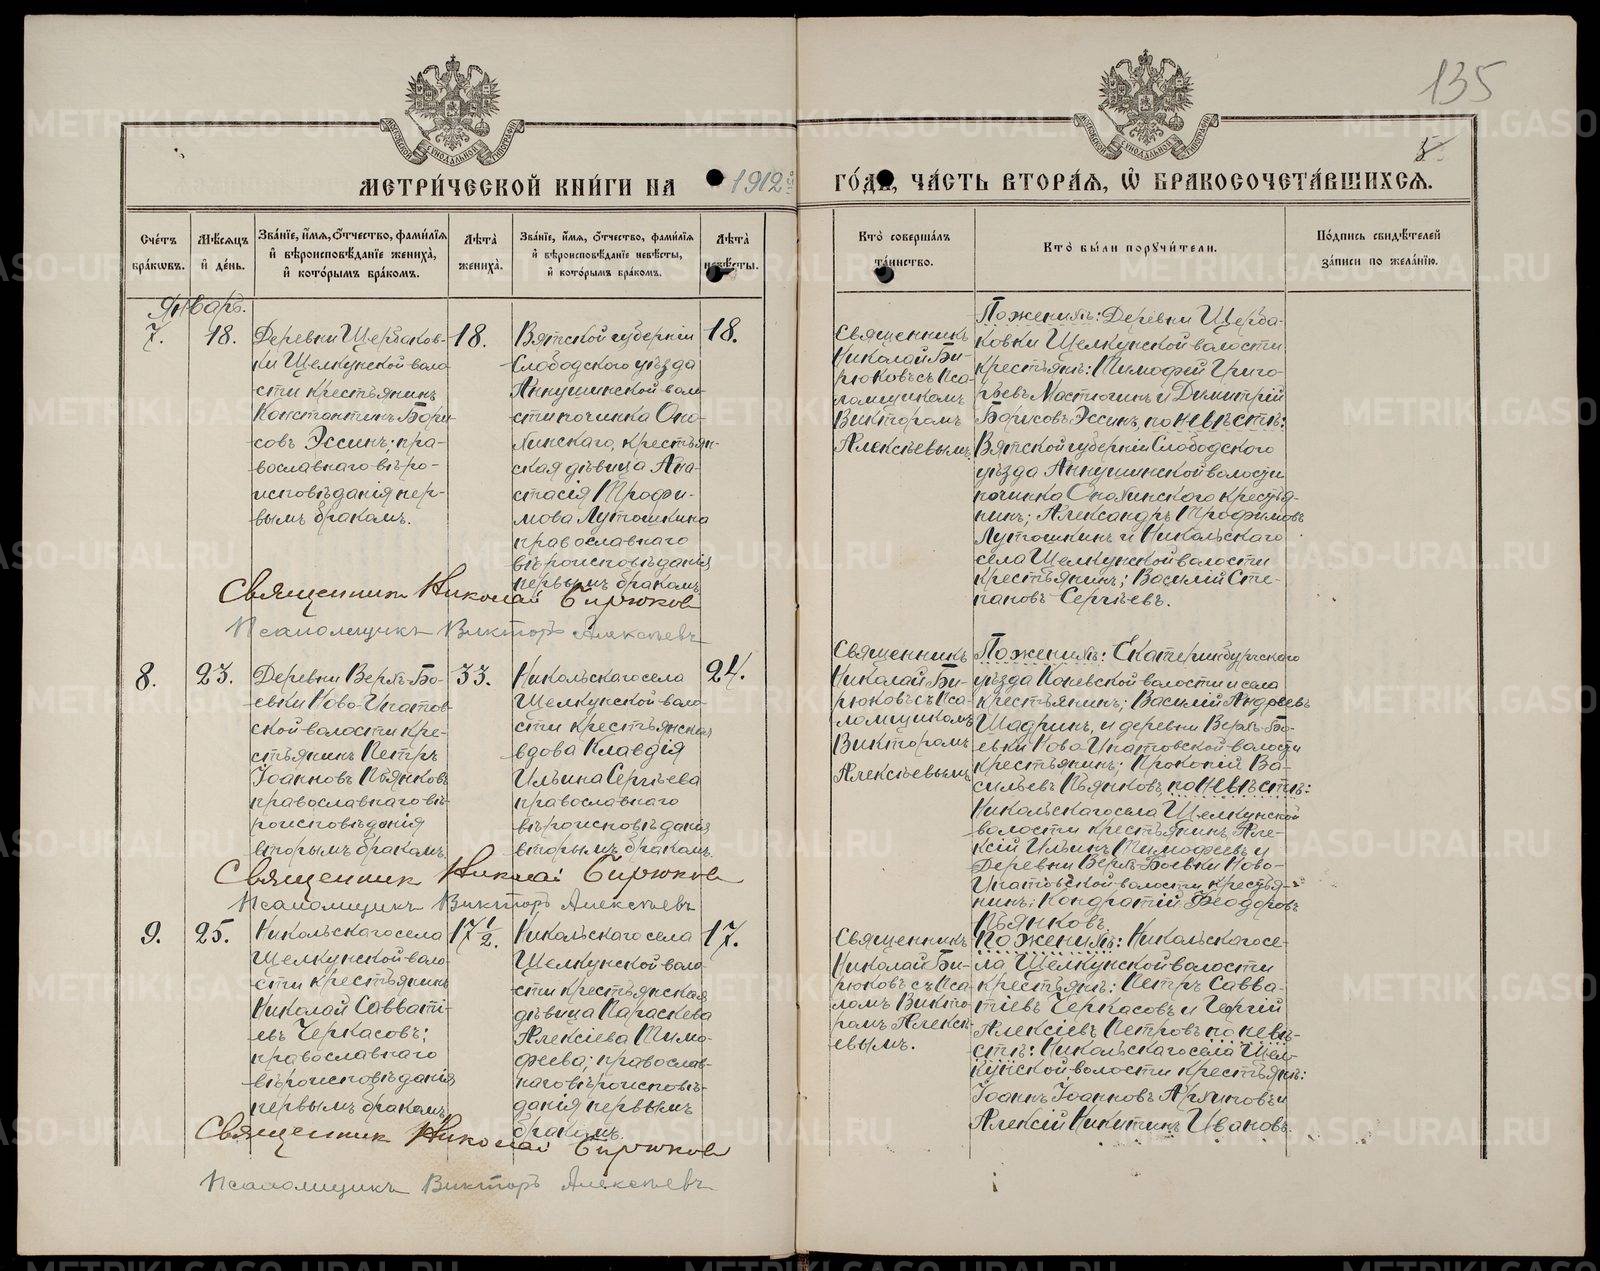 135
5
МЕТРИ́ЧЕСКОЙ КНИ́ГИ НА 1912 й
ГО́ДЪ, ЧА́СТЬ ВТОРА́Я, Ѿ БРАКОСОЧЕТА́ВШИХСЯ.
Сче́тъ бра́кѡвъ.
Мѣ́сяцъ и҆ де́нь.
Зва́нїе, и҆́мя, ѻ҆́тчество, фами́лїя и҆ вѣроисповѣ́данїе жениха̀, и҆ кото́рымъ бра́комъ.
Лѣ́та жениха̀.
Зва́нїе, и҆́мя, ѻ҆́тчество, фами́лїя и҆ вѣроисповѣ́данїе невѣ́сты, и҆ кото́рымъ бра́комъ.
Лѣ́та невѣ́сты.
Кто̀ соверша́лъ та́инство.
Кто̀ бы́ли порꙋчи́тели.
По́дпись свидѣ́телей за́писи по жела́нїю.
Январь.
7.
18.
Деревни Щербаков-
ки Щелкунской воло-
сти крестьянинъ
Константинъ Бори-
совъ Эссинъ, пра-
вославнаго вѣро-
исповѣданія пер-
вымъ бракомъ.
18.
Вятской губерніи
Слободского уѣзда
Аннушинской воло-
сти починка Опо-
линскаго, крестьян-
ская дѣвица Ана-
стасія Трофи-
мова Лутошкина
православнаго
вѣроисповѣданія
первымъ бракомъ
18.
Священникъ
Николай Би-
рюковъ съ Пса-
ломщикомъ
Викторомъ
Алексѣевымъ
По женихѣ: Деревни Щерба-
ковки Щелкунской волости
крестьянъ: Тимофей Григо-
рьевъ Мастюгинъ и Димитрій
Борисовъ Эссинъ, по невѣстѣ:
Вятской губерніи Слободского
уѣзда Аннушинской волости
починка Ополинскаго крестья-
нинъ; Александръ Трофимовъ
Лутошкинъ и Никольскаго
села Щелкунской волости
крестьянинъ; Василий Сте-
пановъ Сергѣевъ.
Священникъ Николай Бирюков
Псаломщикъ Викторъ Алексѣевъ
8.
23.
Деревни Верхъ-Бо-
евки Ново-Ипатов-
ской волости кре-
стьянинъ Петръ
Іоанновъ Пьянковъ
православнаго вѣ-
роисповѣданія
вторымъ бракомъ.
33.
Никольскаго села
Щелкунской воло-
сти крестьянская
вдова Клавдія
Ильина Сергѣева
православнаго
вѣроисповѣданія
вторымъ бракомъ.
24.
Священникъ
Николай Би-
рюковъ съ Пса-
ломщикомъ
Викторомъ
Алексѣевымъ
По женихѣ: Екатеринбургскаго
уѣзда Коневской волости и села
крестьянинъ; Василій Андреевъ
Шадринъ, и деревни Верхъ-Бо-
евки Ново-Ипатовской волости
крестьянинъ; Прокопій Ва-
сильевъ Пьянковъ, по невѣстѣ:
Никольскаго села Щелкунской
волости крестьянинъ Але-
ксій Ильинъ Тимофеевъ и
Деревни Верхъ-Боевки Ново-
Ипатовской волости крестья-
нинъ; Кондратій Ѳеодоровъ
Пьянковъ.
Священник Николай Бирюков
Псаломщикъ Викторъ Алексѣевъ
9.
25.
Никольскаго села
Щелкунской воло-
сти крестьянинъ
Николай Савваті-
евъ Черкасовъ;
православнаго
вѣроисповѣданія
первымъ бракомъ
17 1/2.
Никольскаго села
Щелкунской воло-
сти крестьянская
дѣвица Параскева
Алексіева Тимо-
феева; православ-
наго вѣроисповѣ-
данія первымъ
бракомъ.
17.
Священникъ
Николай Би-
рюковъ съ Пса-
ломъ Викто-
ромъ Алексі-
евымъ.
По женихѣ: Никольскаго се-
ла Щелкунской волости
крестьянъ: Петръ Савва-
тіевъ Черкасовъ и Георгій
Алексіевъ Петровъ по невѣ-
стѣ: Никольскаго села Щел-
кунской волости крестьянъ:
Іоаннъ Іоанновъ Архиповъ и
Алексій Никитинъ Ивановъ.
Священник Николай Бирюков
Псаломщикъ Викторъ Алексѣевъ
METRIKI.GASO-URAL.RU